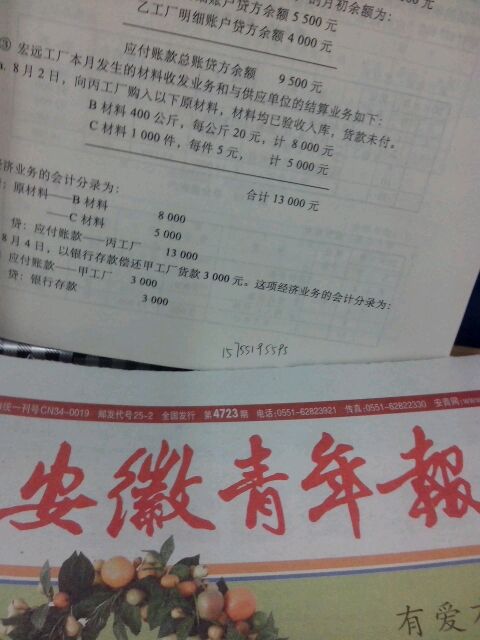 的月初余额为:
细账户贷方余额 5 500 元
乙工厂明细账户贷方余额 4 000 元
应付账款总账贷方余额 9 500 元
③ 宏远工厂本月发生的材料收发业务和与供应单位的结算业务如下:
8 月 2 日，向丙工厂购入以下原材料，材料均已验收入库，货款未付。
B 材料 400 公斤，每公斤 20 元，计 8 000 元
C 材料 1 000 件，每件 5 元， 计 5 000 元
合计 13 000 元
济业务的会计分录为:
: 原材料——B 材料 8 000
——C 材料 5 000
贷: 应付账款——丙工厂 13 000
8 月 4 日，以银行存款偿还甲工厂货款 3 000 元。这项经济业务的会计分录为:
应付账款——甲工厂 3 000
贷: 银行存款 3 000
15755195595
统一刊号CN34-0019 邮发代号25-2 全国发行 第4723期 电话:0551-62823921 传真:0551-62822330 安青网:www.
安徽青年報
有爱